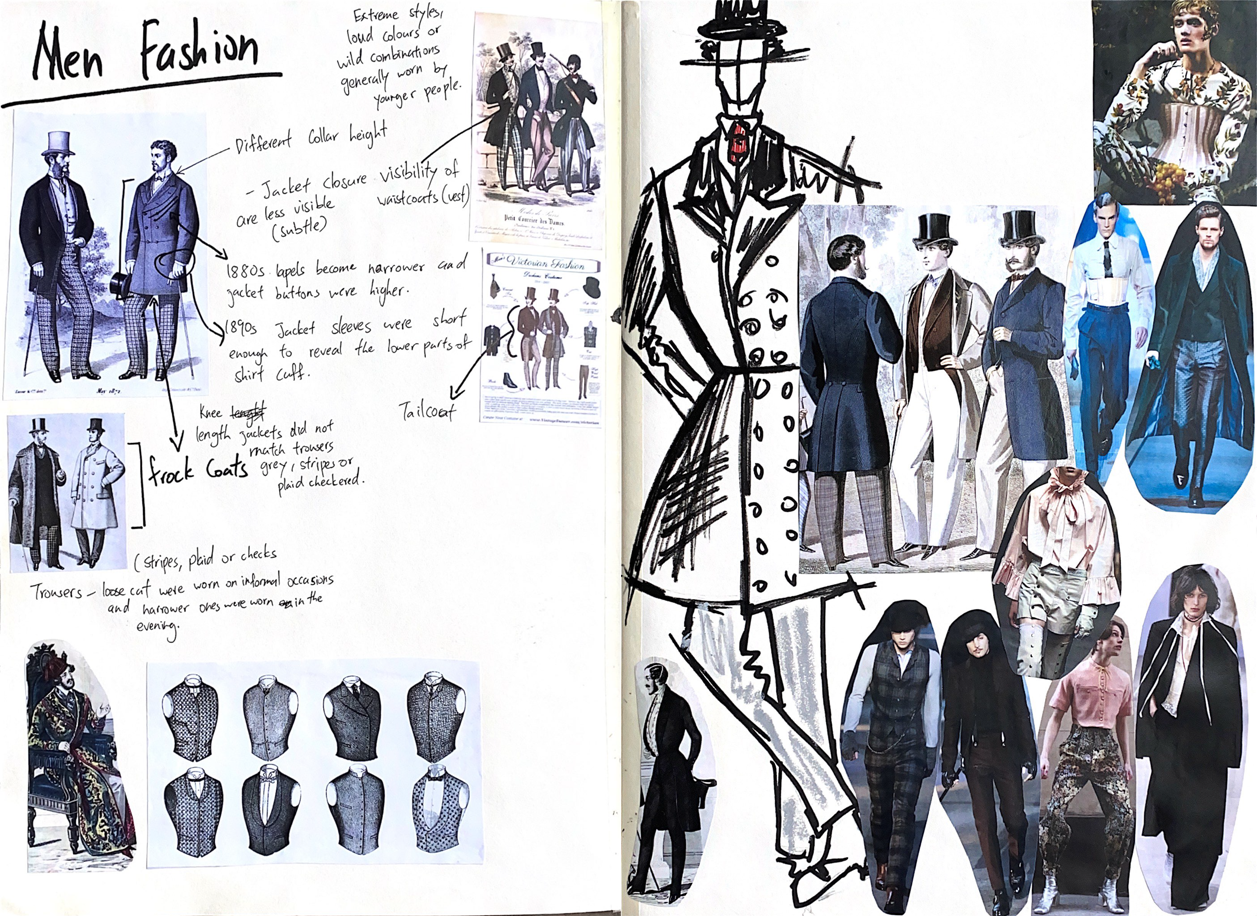 Men Fashion
Extreme styles,
loud colours or
wild combinations
generally worn by
younger people.
Different collar height
- Jacket closure
are less visible
(subtle)
visibility of
waistcoats (vest)
Petit Courrier des Dames
1880s lapels become narrower and
jacket buttons were higher.
1890s Jacket sleeves were short
enough to reveal the lower parts of
shirt cuff.
Victorian Fashion
Tailcoat
Knee
length jackets did not
match trousers
grey, stripes or
plaid checkered.
frock Coats
(stripes, plaid or checks
Trousers - loose cut were worn on informal occasions
and narrower ones were worn in the
evening.